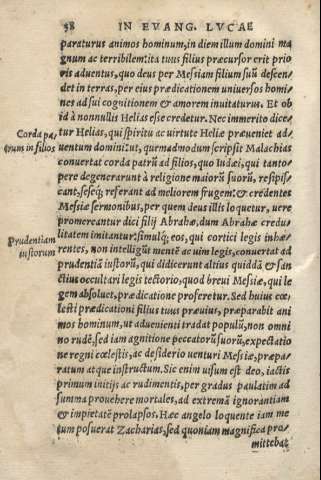 58 IN EVANG. LVCAE
paraturus animos hominum, in diem illum domini ma
gnum ac terribilem: ita tuus filius præcursor erit prio
ris aduentus, quo deus per Messiam filium suũ descen/
det in terras, per eius prædicationem uniuersos homi/
nes ad sui cognitionem & amorem inuitaturus. Et ob
id à nonnullis Helias esse credetur. Nec immerito dice/
Corda pa/
trum in filios
tur Helias, qui spiritu ac uirtute Heliæ præueniet ad/
uentum domini: ut, quemadmodum scripsit Malachias
conuertat corda patrũ ad filios, quo Iudæi, qui tanto/
pere degenerarunt à religione maiorũ suorũ, resipis/
cant, seseq́; referant ad meliorem frugem: & credentes
Messiæ sermonibus, per quem deus illis loquetur, uere
promereantur dici filij Abrahæ, dum Abrahæ credu/
Prudentiam
iustorum
litatem imitantur: simulq́; eos, qui cortici legis inhæ/
rentes, non intelligũt mentẽ ac uim legis, conuertat ad
prudentiã iustorũ, qui didicerunt altius quiddã & san/
ctius occultari legis tectorio, quod breui Messiæ, qui le
gem absoluet, prædicatione proferetur. Sed huius cœ/
lesti prædicationi filius tuus præuius, præparabit ani
mos hominum, ut aduenienti tradat populũ, non omni
no rudẽ, sed iam agnitione peccatorũ suorũ, expectatio
ne regni cœlestis, ac desiderio uenturi Messiæ, præpa/
ratum atque instructum. Sic enim uisum est deo, iactis
primum initijs ac rudimentis, per gradus paulatim ad
summa prouehere mortales, ad extremã ignorantiam
& impietatẽ prolapsos. Hæc angelo loquente iam me
tum posuerat Zacharias, sed quoniam magnifica pro/
mittebat